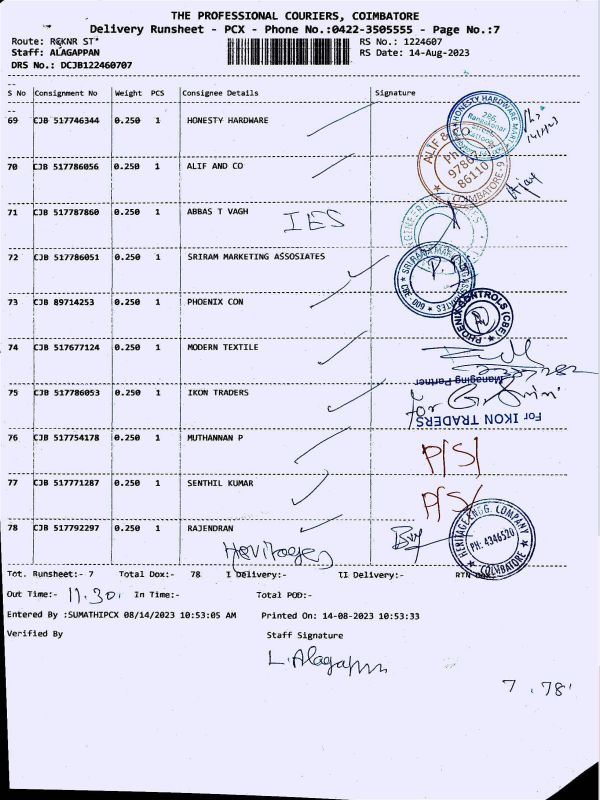 THE PROFESSIONAL COURIERS, COIMBATORE
Delivery Runsheet - PCX - Phone No.:0422-3505555 - Page No.:7
Route: R&KNR ST* RS No.: 1224607
Staff: ALAGAPPAN RS Date: 14-Aug-2023
DRS No.: DCJB122460707
S No Consignment No Weight PCS Consignee Details Signature
69 CJB 517746344 0.250 1 HONESTY HARDWARE
HONESTY HARDWARE MART
286,
70 CJB 517786056 0.250 1 ALIF AND CO
ALIF &
86110
COIMBATORE
Ajay
71 CJB 517787860 0.250 1 ABBAS T VAGH
IES
72 CJB 517786051 0.250 1 SRIRAM MARKETING ASSOSIATES
73 CJB 89714253 0.250 1 PHOENIX CON
PHOENIX CONTROLS (CBE)
74 CJB 517677124 0.250 1 MODERN TEXTILE
Managing Partner
75 CJB 517786053 0.250 1 IKON TRADERS
for
For IKON TRADERS
76 CJB 517754178 0.250 1 MUTHANNAN P
P/S/
77 CJB 517771287 0.250 1 SENTHIL KUMAR
P/S/
78 CJB 517792297 0.250 1 RAJENDRAN
HERITAGE ENGG. COMPANY
PH: 4346520
COIMBATORE
Heritages
Tot. Runsheet:- 7 Total Dox:- 78 I Delivery:- II Delivery:- RTN
Out Time:- 11.30. In Time:- Total POD:-
Entered By :SUMATHIPCX 08/14/2023 10:53:05 AM Printed On: 14-08-2023 10:53:33
Verified By Staff Signature
L. Alagappan
7 .78'